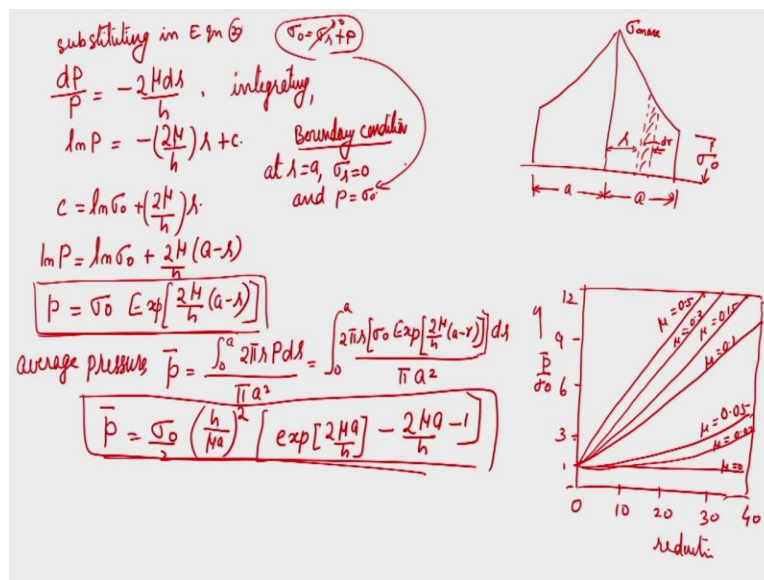 substituting in Eqn ③ σ₀ = σᵣ⁰ + P
dP/P = -2μdr/h . integrating,
ln P = -(2μ/h) r + c.
Boundary condition
at r=a, σᵣ=0
and P=σ₀
c = ln σ₀ + (2μ/h) r.
ln P = ln σ₀ + 2μ/h (a-r)
P = σ₀ Exp[2μ/h (a-r)]
average pressure p̄ = ∫₀ᵃ 2πr P dr / πa² = ∫₀ᵃ 2πr[σ₀ Exp[2μ/h (a-r)]] dr / πa²
p̄ = σ₀/2 (h/μa)² [exp[2μa/h] - 2μa/h - 1]
σmax
r dr
σ₀
a a
12
9
6
3
1
p̄/σ₀
μ=0.5
μ=0.3
μ=0.15
μ=0.1
μ=0.05
μ=0
0 10 20 30 40